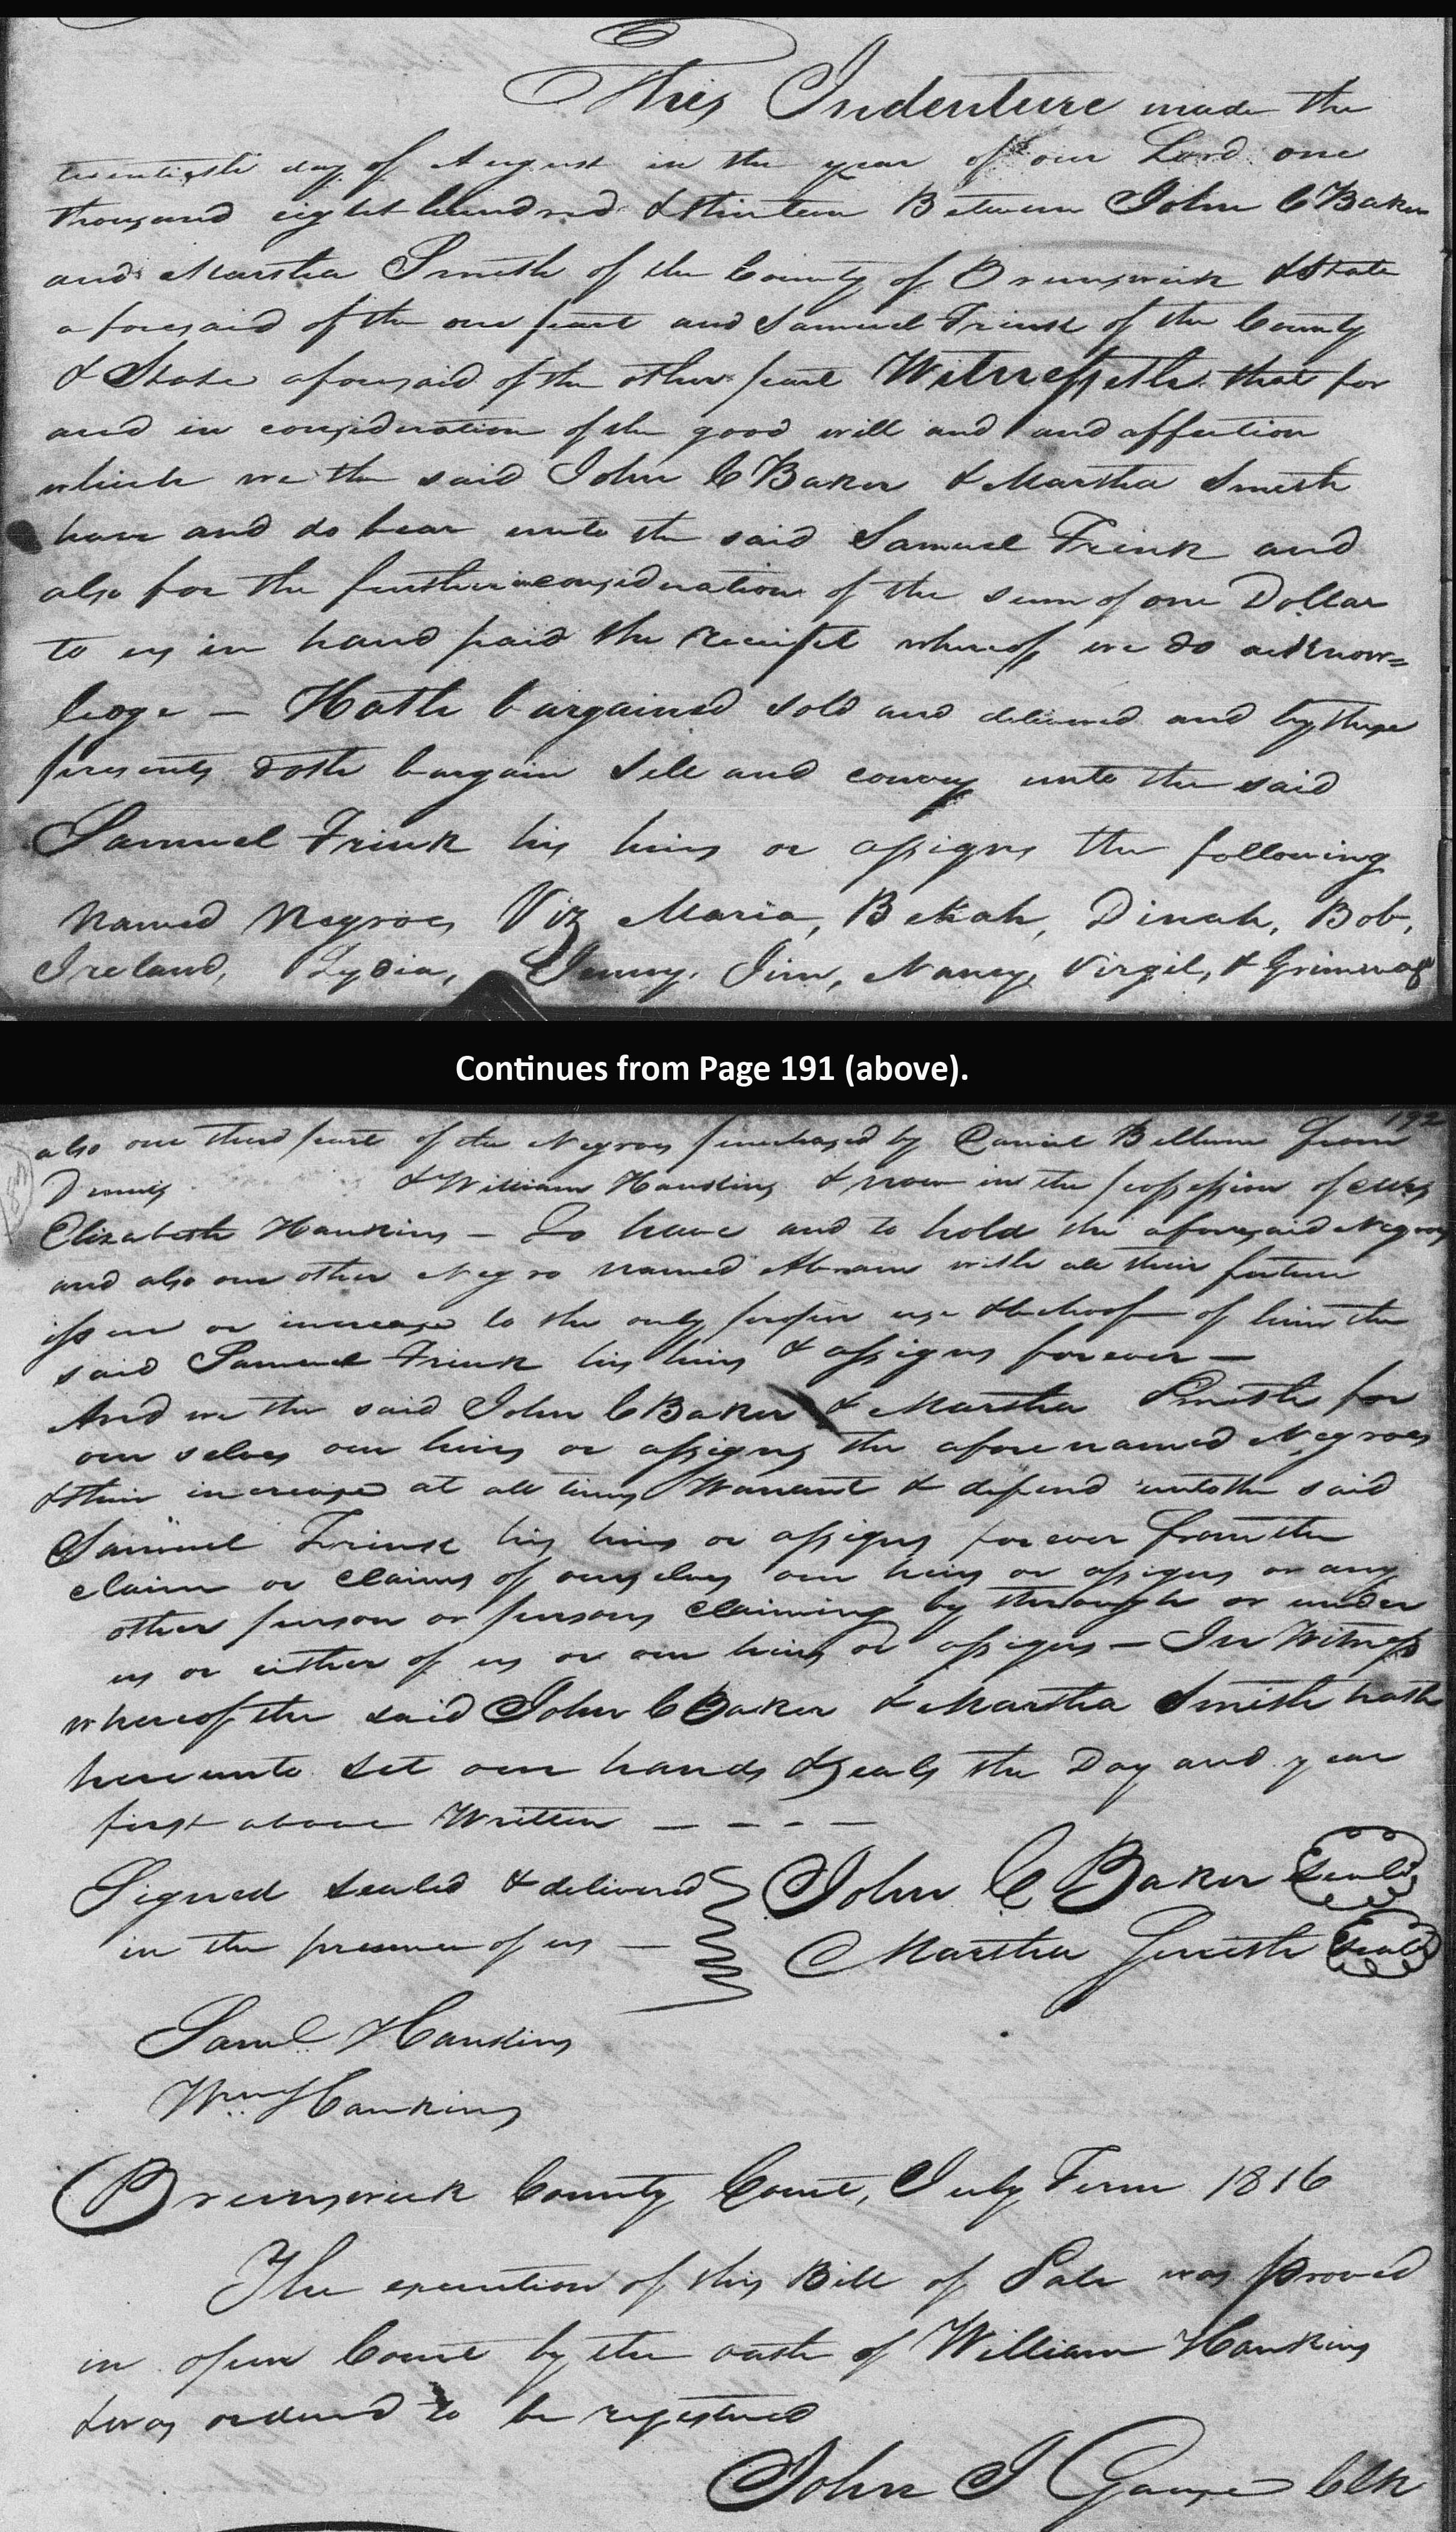 This Indenture made the
twentieth day of August in the year of our Lord one
thousand eight hundred & thirteen Between John C Baker
and Martha Smith of the County of Brunswick & State
aforesaid of the one part and Samuel Frink of the County
& State aforesaid of the other part Witnesseth that for
and in consideration of the good will and and affection
which we the said John C Baker & Martha Smith
have and do bear unto the said Samuel Frink and
also for the further consideration of the sum of one Dollar
to us in hand paid the receipt whereof we do acknow=
ledge — Hath bargained sold and delivered and by these
presents doth bargain sell and convey unto the said
Samuel Frink his heirs or assigns the following
Named Negroes Viz Maria, Bekah, Dinah, Bob,
Ireland, Lydia, Jenny, Jim, Nancy, Virgil, &
Continues from Page 191 (above).
192
also one third part of the Negroes purchased by Daniel Bellune from
Dennis & William Hankins & now in the possession of Mrs
Elizabeth Hankins — To have and to hold the aforesaid Negroes
and also one other Negro named Abram with all their future
issue or increase to the only proper use & behoof of him the
said Samuel Frink his heirs & assigns forever —
And we the said John C Baker & Martha Smith for
our selves our heirs or assigns the afore named Negroes
& their increase at all times Warrant & defend unto the said
Samuel Frink his heirs or assigns forever from the
claim or claims of ourselves our heirs or assigns or any
other person or persons claiming by through or under
us or either of us or our heirs or assigns — In Witness
whereof the said John C Baker & Martha Smith hath
hereunto set our hands & seals the Day and year
first above Written — - - —
Signed sealed & delivered John C Baker Seal
in the presence of us — Martha Smith Seal
Saml Hankins
Wm Hankins
Brunswick County Court, July Term 1816
The execution of this Bill of Sale was proved
in open Court by the oath of William Hankins
& was ordered to be registered
John J Gause Clk